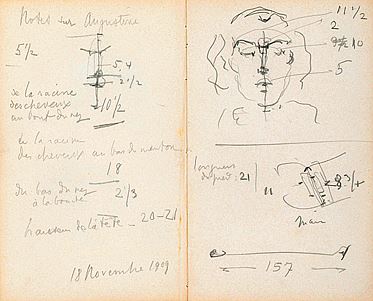 Notes sur Augustine
5 1/2
5,4
2 1/2
10 1/2
de la racine
des cheveux
au bout du nez
de la racine
des cheveux au bas du menton
18
du bas du nez
à la bouche
2 1/3
hauteur de la tête - 20-21
18 Novembre 1909
11 1/2
2
10
5
longueur
du pied: 21
11
8 3/4
main
157